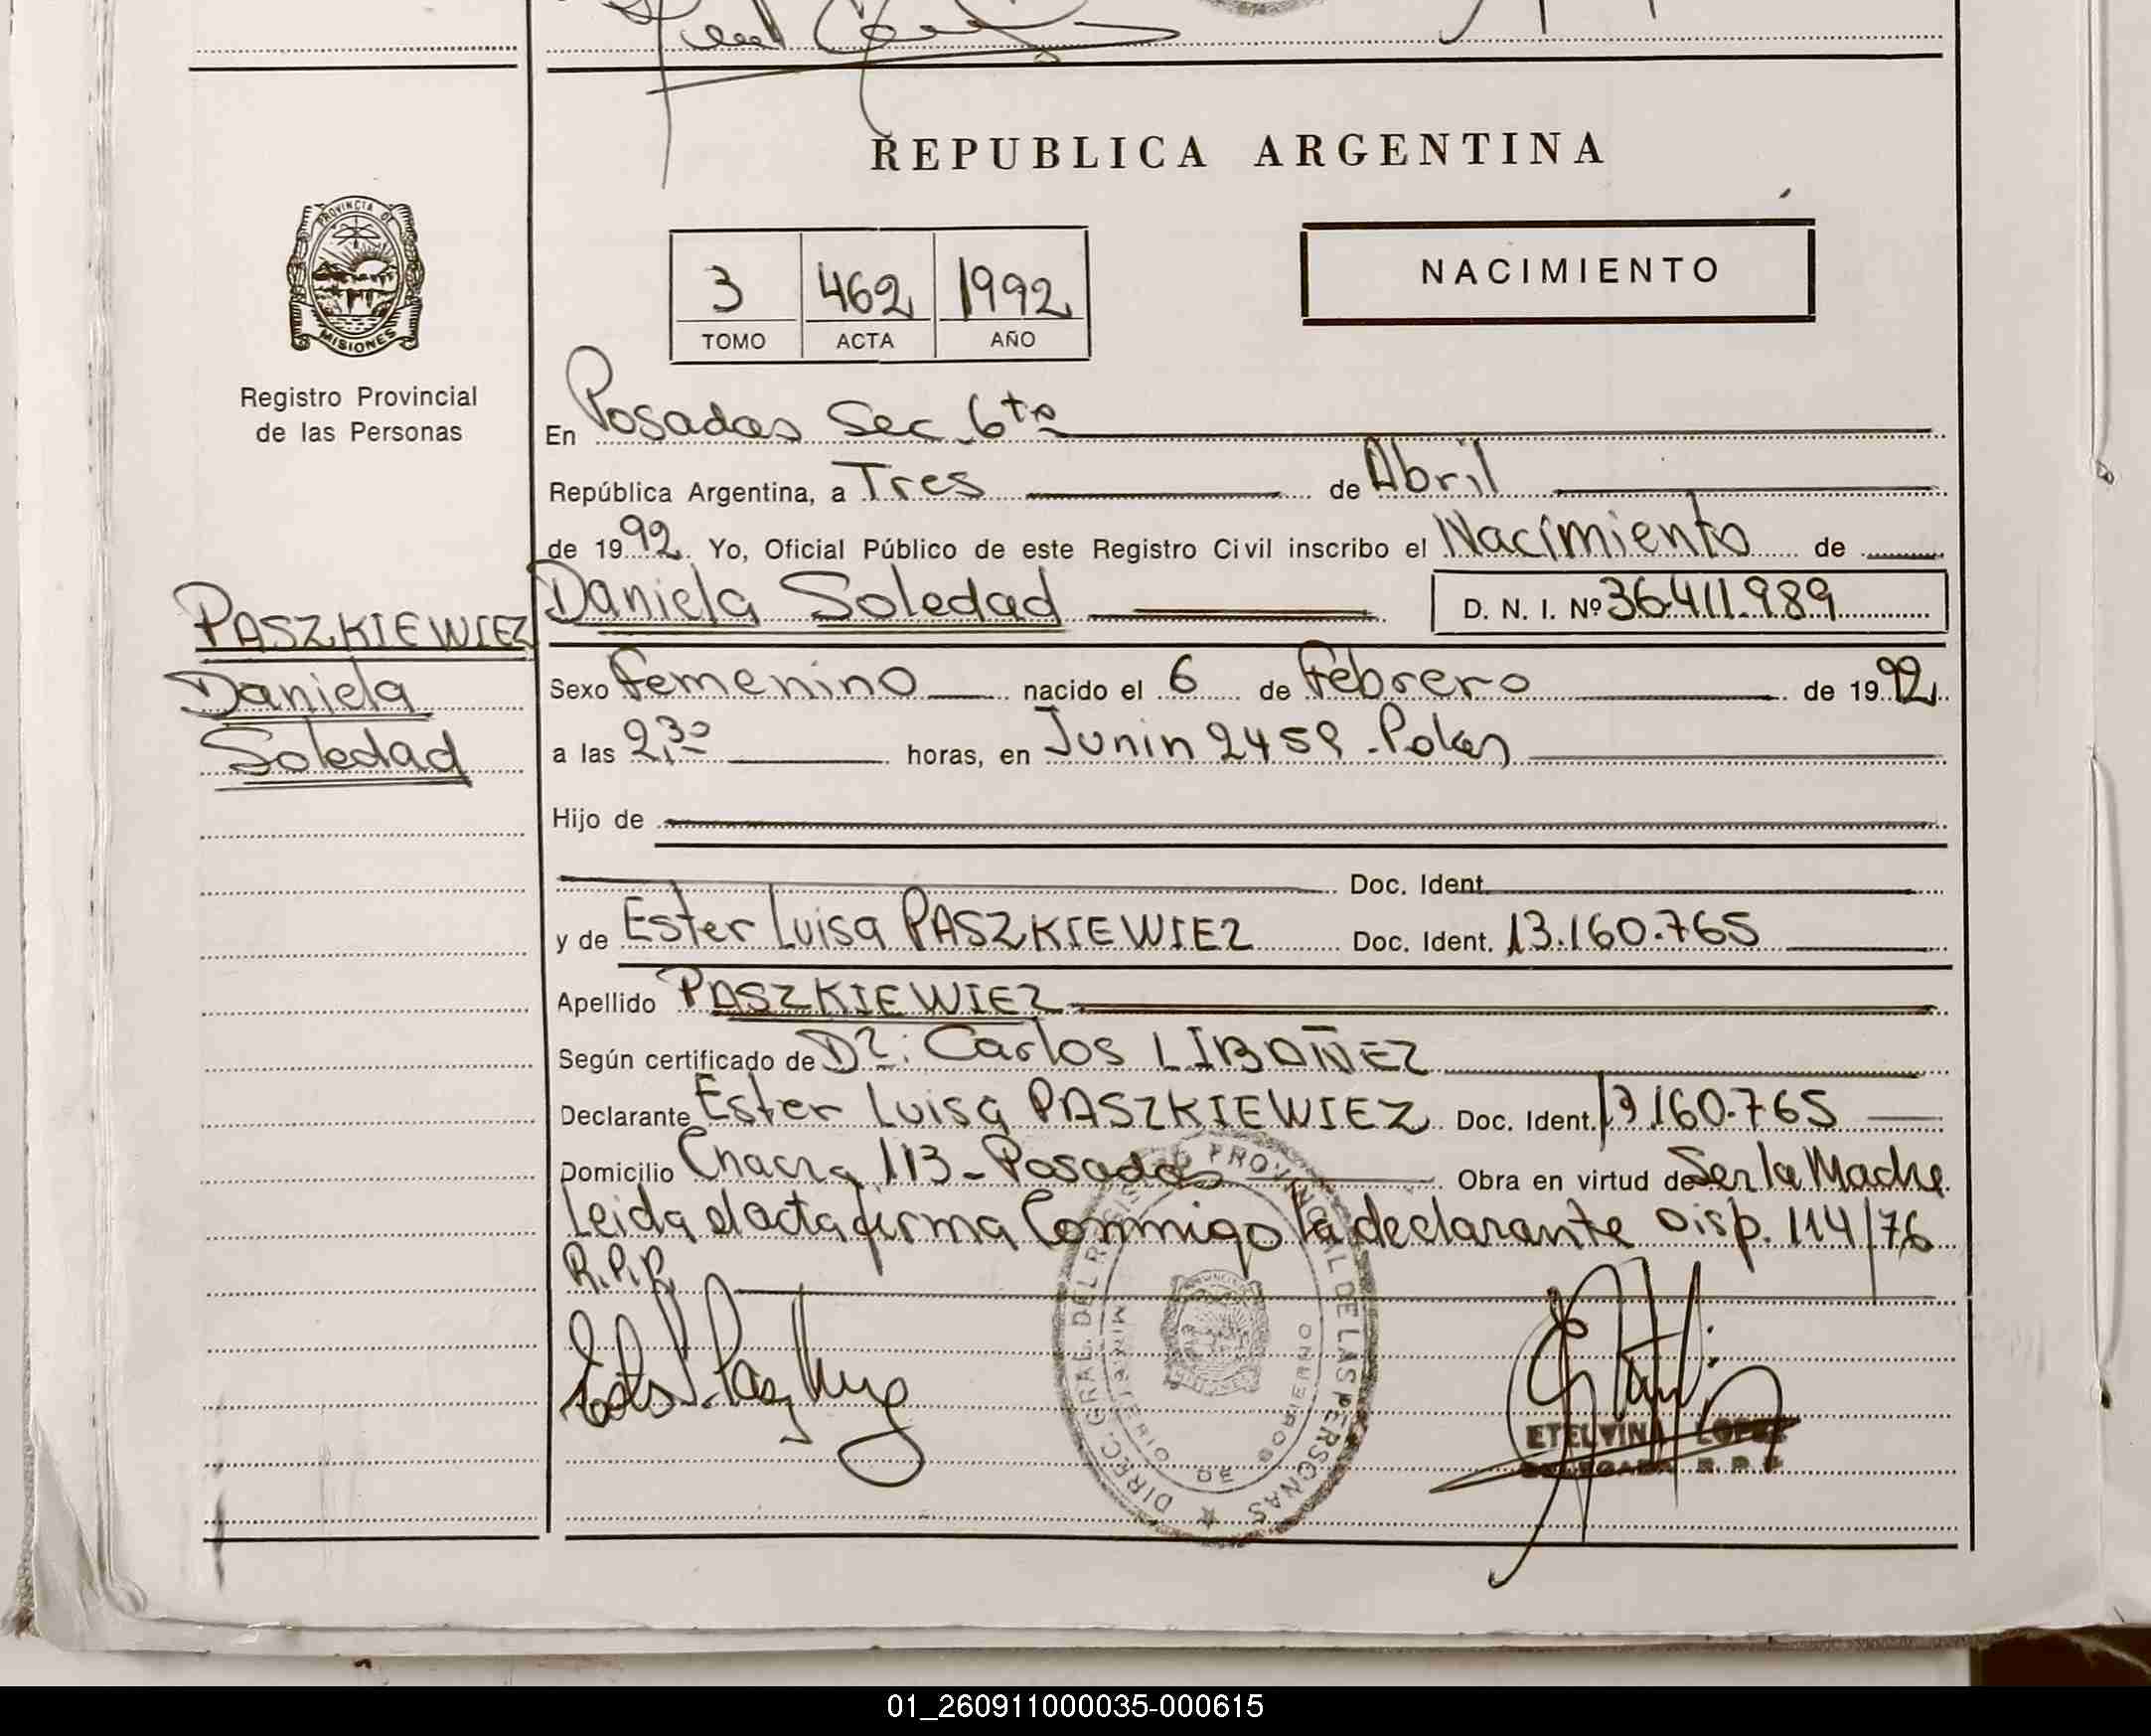 REPUBLICA ARGENTINA
PROVINCIA DE
MISIONES
Registro Provincial
de las Personas
3 462 1992
TOMO ACTA AÑO
NACIMIENTO
En Posadas Sec. 6ta
República Argentina, a Tres de Abril
de 1992. Yo, Oficial Público de este Registro Civil inscribo el Nacimiento de
PASZKIEWIEZ
Daniela
Soledad
Daniela Soledad D. N. I. Nº 36.411.989
Sexo femenino nacido el 6 de Febrero de 1992
a las 2,30 horas, en Junin 2459
Hijo de
Doc. Ident.
y de Ester Luisa PASZKIEWIEZ Doc. Ident. 13.160.765
Apellido PASZKIEWIEZ
Según certificado de Dr: Carlos LIBAÑEZ
Declarante Ester Luisa PASZKIEWIEZ Doc. Ident. 13.160.765
Domicilio Chacra 113 - Posadas Obra en virtud de Ser la Madre
Leida el acta firma Conmigo la declarante Disp. 114/76
R.P.P.
DIREC. GRAL. DEL REGISTRO PROVINCIAL DE LAS PERSONAS
MINISTERIO DE GOBIERNO
ETELVINA LOPEZ
DELEGADA R. P. P.
01_260911000035-000615